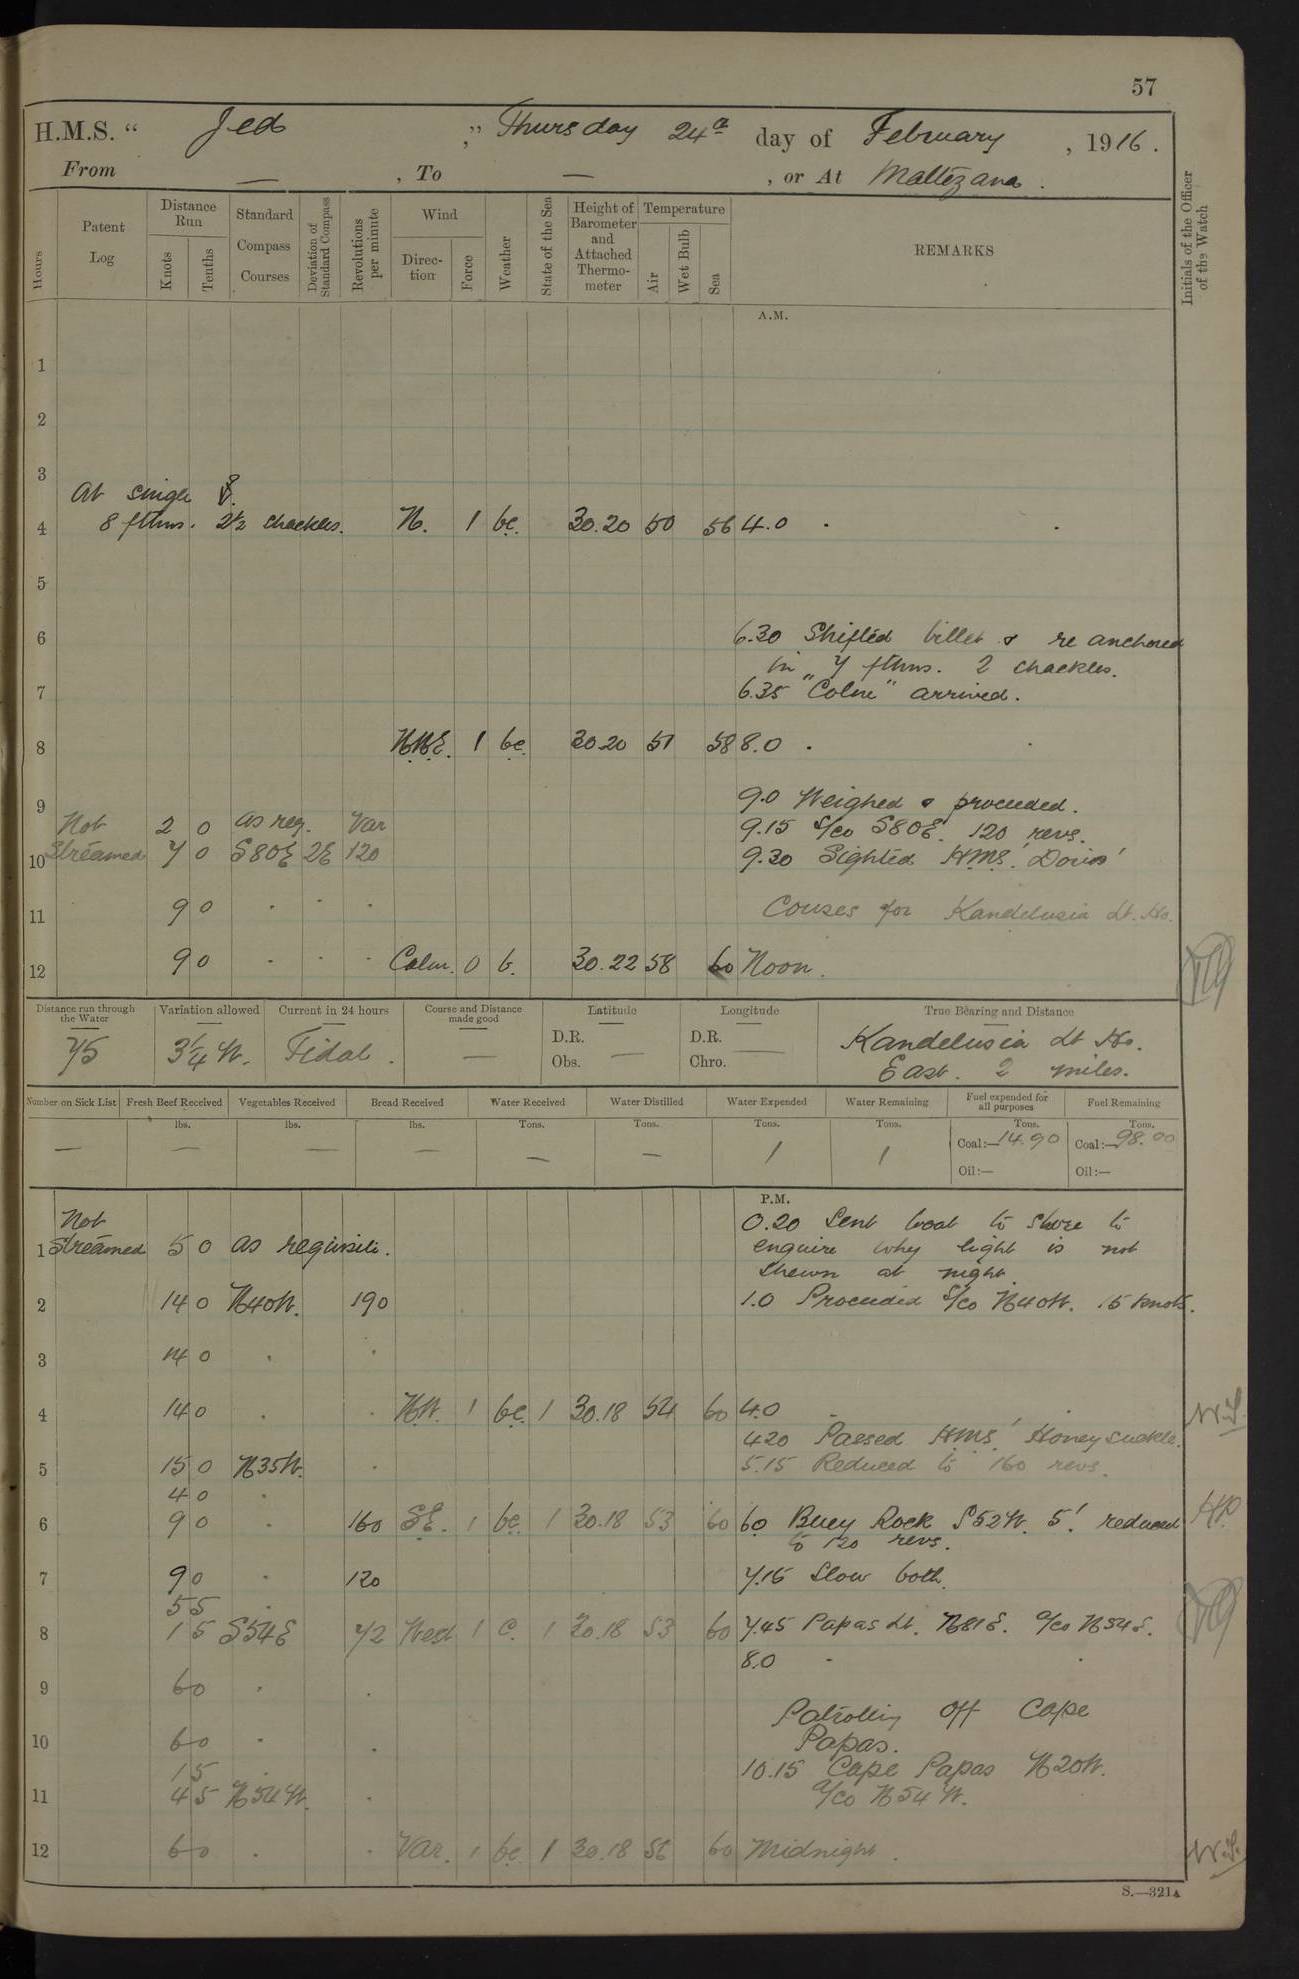 57
H.M.S. “ Jed ” Thursday 24th day of February , 1916 .
From — , To — , or At Maltezana .
Initials of the Officer of the Watch
Hours
Patent Log
Distance Run
Knots
Tenths
Standard Compass Courses
Deviation of Standard Compass
Revolutions per minute
Wind
Direction
Force
Weather
State of the Sea
Height of Barometer and Attached Thermometer
Temperature
Air
Wet Bulb
Sea
REMARKS
A.M.
1
2
3
At single
4 8 fthms. 2½ shackles. N. 1 bc. 30.20 50 56 4.0
5
6 6.30 Shifted billet & re anchored
in 7 fthms. 2 shackles.
7 6.35 "Colne" arrived.
8 NNE. 1 bc. 30.20 51 58 8.0
9 9.0 Weighed & proceeded.
Not 2 0 as req. Var 9.15 S/co S80E. 120 revs.
10 Streamed 7 0 S80E 2E 120 9.30 Sighted HMS. 'Doris'
11 9 0 Couses for Kandelusia Lt. Ho.
12 9 0 Calm. 0 b. 30.22 58 60 Noon.
Distance run through the Water
75
Variation allowed
3¼ W.
Current in 24 hours
Tidal.
Course and Distance made good
—
Latitude
D.R.
Obs. —
Longitude
D.R.
Chro. —
True Bearing and Distance
Kandelusia Lt Ho.
East. 2 miles.
Number on Sick List
—
Fresh Beef Received
lbs.
—
Vegetables Received
lbs.
—
Bread Received
lbs.
—
Water Received
Tons.
—
Water Distilled
Tons.
—
Water Expended
Tons.
1
Water Remaining
Tons.
1
Fuel expended for all purposes
Tons.
Coal:—14.90
Oil:—
Fuel Remaining
Tons.
Coal:—98.00
Oil:—
P.M.
Not 0.20 Sent boat to shore to
1 Streamed 5 0 as requisite. enquire why light is not
shewn at night.
2 14 0 N40W. 190 1.0 Proceeded S/co N40W. 15 knots.
3 14 0
4 14 0 NW. 1 bc. 1 30.18 54 60 4.0 W.S.
4.20 Passed HMS. 'Honeysuckle.
5 15 0 N35W. 5.15 Reduced to 160 revs.
4 0
6 9 0 160 SE. 1 bc. 1 30.18 53 60 6.0 Buey Rock S52W. 5'. reduced
to 120 revs.
7 9 0 120 7.15 Slow both.
5 5
8 1 5 S54E 72 West 1 c. 1 30.18 53 60 7.45 Papas Lt. N81E. a/co N54E.
8.0
9 6 0
Patrolling off Cape
10 6 0 Papas.
1 5 10.15 Cape Papas N20W.
11 4 5 N54W. a/co N54W.
12 6 0 Var. 1 bc 1 30.18 56 60 Midnight. W.S.
S.—321A